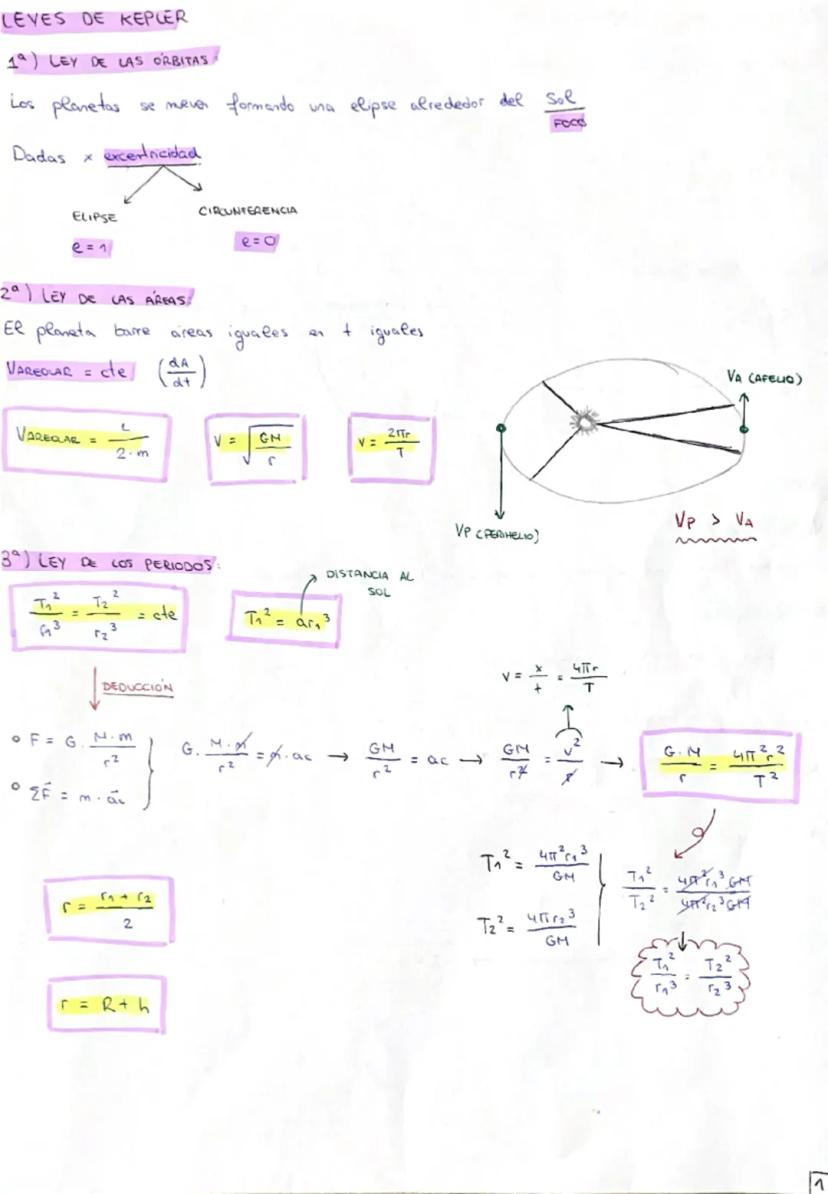 LEYES DE KEPLER
1ª) LEY DE LAS ÓRBITAS:
Los planetas se mueven formando una elipse alrededor del Sol
FOCO
Dadas x excentricidad
ELIPSE
CIRCUNFERENCIA
e = 1
e = 0
2ª) LEY DE LAS ÁREAS:
El planeta barre áreas iguales en t iguales
VAREOLAR = cte (dA/dt)
VA (AFELIO)
VAREOLAR = L / 2·m
V = √(GM/r)
V = 2πr/T
VP (PERIHELIO)
VP > VA
3ª) LEY DE LOS PERIODOS:
DISTANCIA AL SOL
T₁²/r₁³ = T₂²/r₂³ = cte
T₁² = ar₁³
DEDUCCIÓN
v = x/t = 4πr/T
F = G · M·m/r²
ΣF⃗ = m · a⃗c
G · M·m/r² = m · ac → GM/r² = ac → GM/r² = v²/r → G·M/r = 4π²r²/T²
T₁² = 4π²r₁³/GM
T₂² = 4πr₂³/GM
T₁²/T₂² = 4π²r₁³GM/4π²r₂³GM
r = r₁ + r₂/2
T₁²/r₁³ = T₂²/r₂³
r = R + h
1